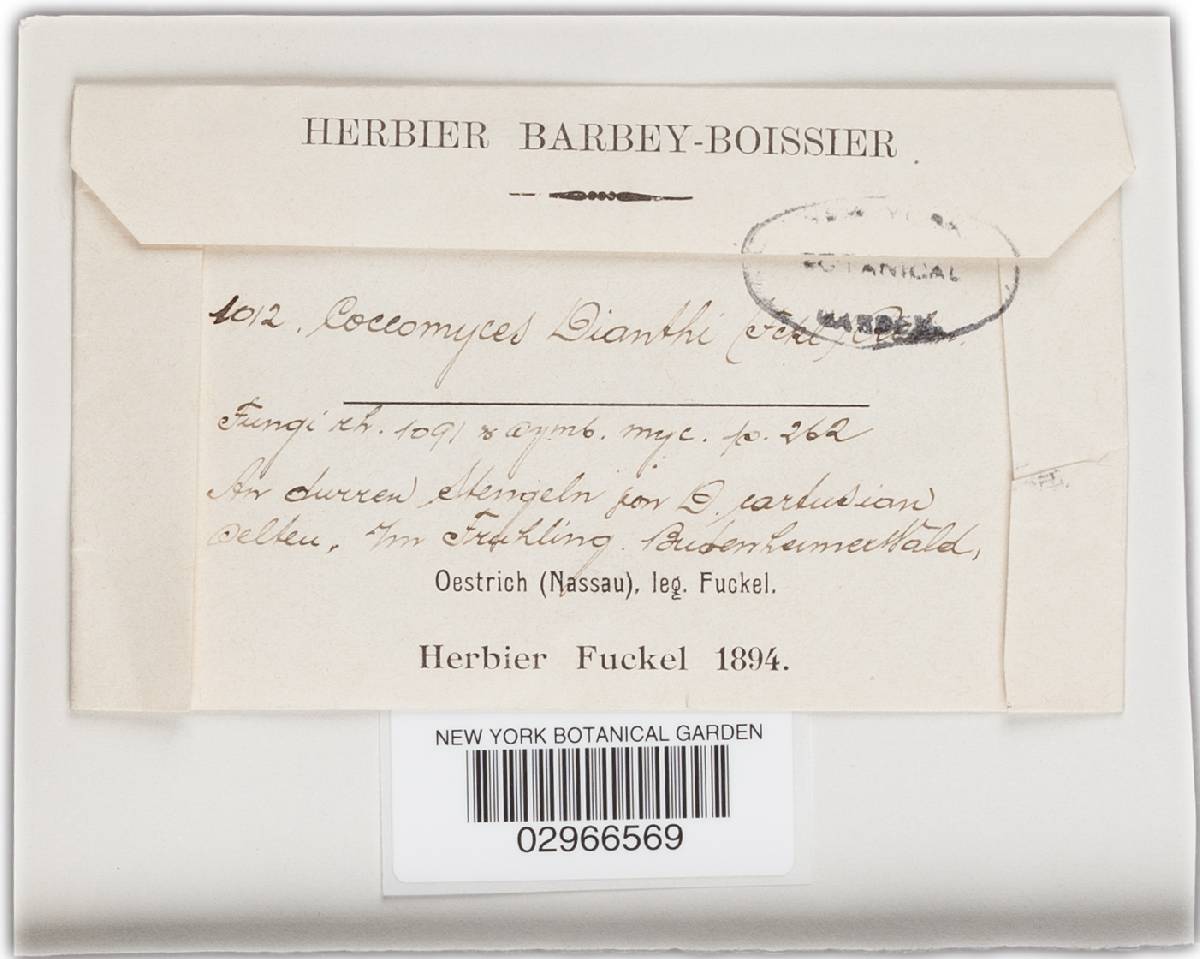 HERBIER BARBEY-BOISSIER
NEW YORK
BOTANICAL
GARDEN
1012. Coccomyces Dianthi (Fckl)
Fungi rh. 1091 & Symb. myc. p. 262
An durren Stengeln fon D. cartusian
Selten. Im Fruhling. BudenheimerWald,
Oestrich (Nassau), leg. Fuckel.
Herbier Fuckel 1894.
NEW YORK BOTANICAL GARDEN
02966569